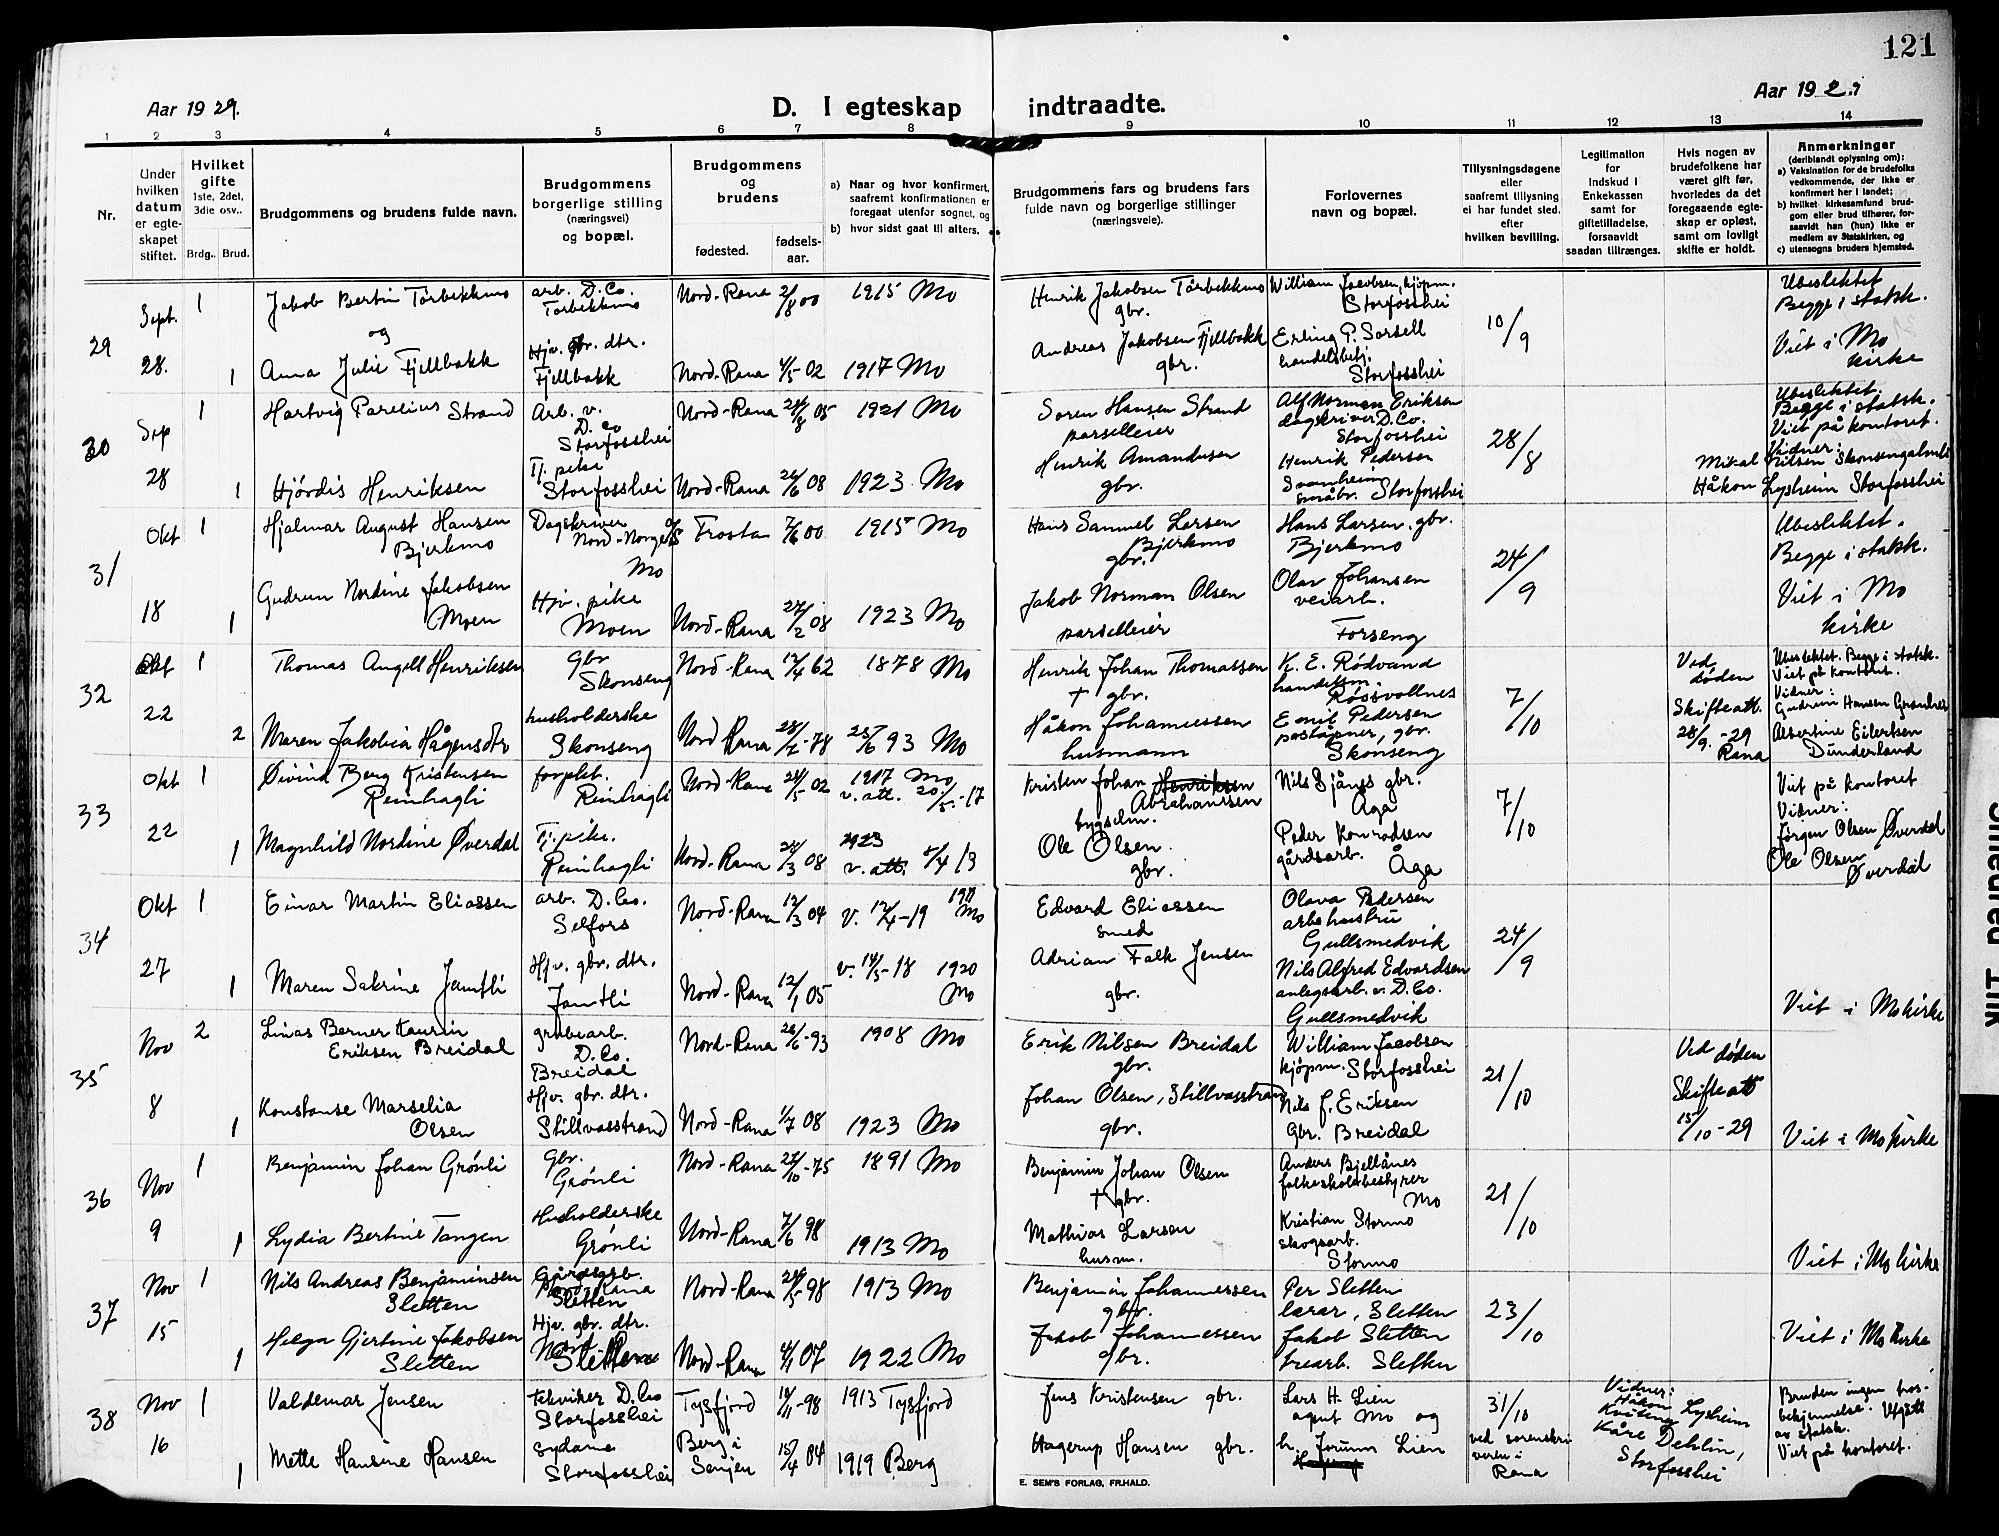 121
Aar 1929.
D. I egteskap indtraadte.
Aar 192
1 2 3 4 5 6 7 8 9 10 11 12 13 14
Nr.
Under hvilken datum er egteskapet stiftet.
Hvilket gifte 1ste, 2det, 3die osv..
Brdg.. Brud.
Brudgommens og brudens fulde navn.
Brudgommens borgerlige stilling (næringsvei) og bopæl.
Brudgommens og brudens
fødested. fødselsaar.
a) Naar og hvor konfirmert, saafremt konfirmationen er foregaat utenfor sognet, og
b) hvor sidst gaat til alters.
Brudgommens fars og brudens fars fulde navn og borgerlige stillinger (næringsveie).
Forlovernes navn og bopæl.
Tillysningsdagene eller saafremt tillysning ei har fundet sted, efter hvilken bevilling.
Legitimation for Indskud i Enkekassen samt for giftetilladelse, forsaavidt saadan tiltrænges.
Hvis nogen av brudefolkene har været gift før, hvorledes da det foregaaende egteskap er opløst, samt om lovligt skifte er holdt.
Anmerkninger (deriblandt oplysning om):
a) Vaksination for de brudefolks vedkommende, der ikke er konfirmert her i landet;
b) hvilket kirkesamfund brudgom eller brud tilhører, forsaavidt han (hun) ikke er medlem av Statskirken, og
c) utensogns bruders hjemsted.
29 Sept. 28. 1
Jakob Bertin Tørbekkmo arb. D. Co. Tørbekkmo Nord-Rana 2/8 00 1915 Mo
og
1 Anna Julie Fjellbakk Hjv. gbr. dtr. Fjellbakk Nord-Rana 4/5 02 1917 Mo
Henrik Jakobsen Tørbekkmo gbr.
Andreas Jakobsen Fjellbakk gbr.
William Jacobsen, kjøpm. Storfosshei
Erling P. Sørsell handelsbetj. Storfosshei
10/9
Ubeslektet Begge i statsk. Viet i Mo kirke
30 Sep 28 1
Hartvig Parelius Strand Arb. v. D. Co Storfosshei Nord-Rana 24/8 05 1921 Mo
1 Hjördis Henriksen Tj. pike Storfosshei Nord-Rana 26/6 08 1923 Mo
Søren Hansen Strand parselleier
Henrik Amandusen gbr.
Alf Norman Eriksen dagskriver D. Co. Storfosshei
Henrik Pedersen Svanheim småbr. Storfosshei
28/8
Ubeslektet. Begge i statsk. Viet på kontoret. Vidner:
Mikal Nilsen
Håkon Lysheim Storfosshei
31 Okt 18 1
Hjalmar August Hansen Bjerkmo Dagskriver A/S Nord-Norge Mo Frosta 7/6 00 1915 Mo
1 Gudrun Nordine Jakobsen Moen Hjv. pike Moen Nord-Rana 27/2 08 1923 Mo
Hans Samuel Larsen Bjerkmo gbr.
Jakob Norman Olsen parselleier
Hans Larsen, gbr. Bjerkmo
Olav Johansen veiarb. Forseng
24/9
Ubeslektet. Begge i statsk. Viet i Mo kirke
32 Okt 22 1
Thomas Angell Henriksen Gbr Skonseng Nord-Rana 12/4 62 1878 Mo
2 Maren Jakobia Hågensdtr husholderske Skonseng Nord-Rana 28/7-78 25/6 93 Mo
Henrik Johan Thomassen † gbr.
Håkon Johannessen husmann
K. E. Rödvand handelsm. Røssvollnes
Emil Pedersen poståpner, gbr. Skonseng
7/10
Ved døden Skifteatt. 28/9.-29 Rana
Ubeslektet. Begge i statsk. Viet på kontoret. Vidner: Gudrun Hansen
Albertine Eilertsen Dunderland
33 Okt 22 1
Øivind Berg Kristensen Reinhagli forpakt. Reinhagli Nord-Rana 24/5 02 1917 Mo v. att. 20/5-17
1 Magnhild Nordine Øverdal Tj. pike. Reinhagli Nord-Rana 24/3 08 1923 v. att. 5/4 13
Kristen Johan Henriksen Abrahamsen bygselm.
Ole Olsen gbr.
Nils Sjånes gbr. Åga
Peder Konradsen gårdsarb. Åga
7/10
Viet på kontoret Vidner: Jørgen Olsen Øverdal Ole Olsen Øverdal
34 Okt 27 1
Einar Martin Eliassen arb. D. Co. Selfors Nord-Rana 12/3 04 v. 12/4-19 Mo
1 Maren Sabrine Jamtli Hjv. gbr. dtr. Jamtli Nord-Rana 12/1 05 v. 14/5-18 1920 Mo
Edvard Eliassen smed
Adrian Falk Jensen gbr.
Olava Pedersen arb. hustru Gullsmedvik
Nils Alfred Edvardsen anlegsarb. v. D. Co. Gullsmedvik
24/9
Viet i Mo kirke
35 Nov 8 2
Linas Berner Kaurin Eriksen Breidal grubearb. D. Co. Breidal Nord-Rana 26/6-93 1908 Mo
1 Konstanse Marselia Olsen Hjv. gbr. dtr. Stillvasstrand Nord-Rana 1/7 08 1923 Mo
Erik Nilsen Breidal gbr.
Johan Olsen, Stillvasstrand gbr.
William Jacobsen kjøpm. Storfosshei
Nils J. Eriksen Gbr. Breidal
21/10
Ved døden Skifteatt 15/10-29
Viet i Mo kirke
36 Nov 9 1
Benjamin Johan Grönli gbr. Grönli Nord-Rana 27/10-75 1891 Mo
1 Lydia Bertine Tangen Husholderske Grönli Nord-Rana 7/6 98 1913 Mo
Benjamin Johan Olsen † gbr.
Mathias Larsen husm.
Anders Bjellånes folkeskolebestyrer Mo
Kristian Stormo skogsarb. Stormo
21/10
Viet i Mo kirke
37 Nov 15 1
Nils Andreas Benjaminsen Sletten Gårdsgb. Sletten Nord-Rana 24/5-98 1913 Mo
1 Helga Gjertine Jakobsen Sletten Hjv. gbr. dtr. Sletten Nord-Rana 4/1 07 1922 Mo
Benjamin Johannessen gbr.
Jakob Johannessen gbr.
Per Sletten lærer, Sletten
Jakob Sletten trearb. Sletten
23/10
Viet i Mo kirke
38 Nov 16 1
Valdemar Jensen tekniker D. Co Storfosshei Tysfjord 10/11-98 1913 Tysfjord
1 Mette Hansine Hansen sydame Storfosshei Berg i Senjen 15/4 04 1919 Berg
Jens Kristensen gbr.
Hagerup Hansen gbr.
Lars H. Lien agent Mo og
h. Jorunn Lien
31/10 ved sorenskriveren i Rana
Vidner: Håkon Lysheim Kåre Dehlin, Storfosshei
Bruden ingen trosbekjennelse. Utgått av statsk. Viet på kontoret.
E. SEM'S FORLAG, FR.HALD.